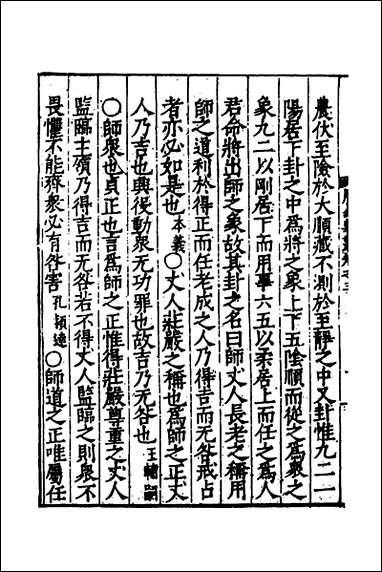 農伏至險於大順藏不測於至靜之中又卦惟九二一
陽居下卦之中爲將之象上下五陰順而從之爲衆之
象九二以剛居下而用事六五以柔居上而任之爲人
君命將出師之象故其卦之名曰師丈人長老之稱用
師之道利於得正而任老成之人乃得吉而无咎戒占
者亦必如是也本義○丈人莊嚴之稱也爲師之正丈
人乃吉也興役動衆无功罪也故吉乃无咎也王輔嗣
○師衆也貞正也言爲師之正惟得莊嚴尊重之丈人
監臨主領乃得吉而无咎若不得丈人監臨之則衆不
畏懼不能齊衆必有咎害孔穎達○師道之正唯屬任